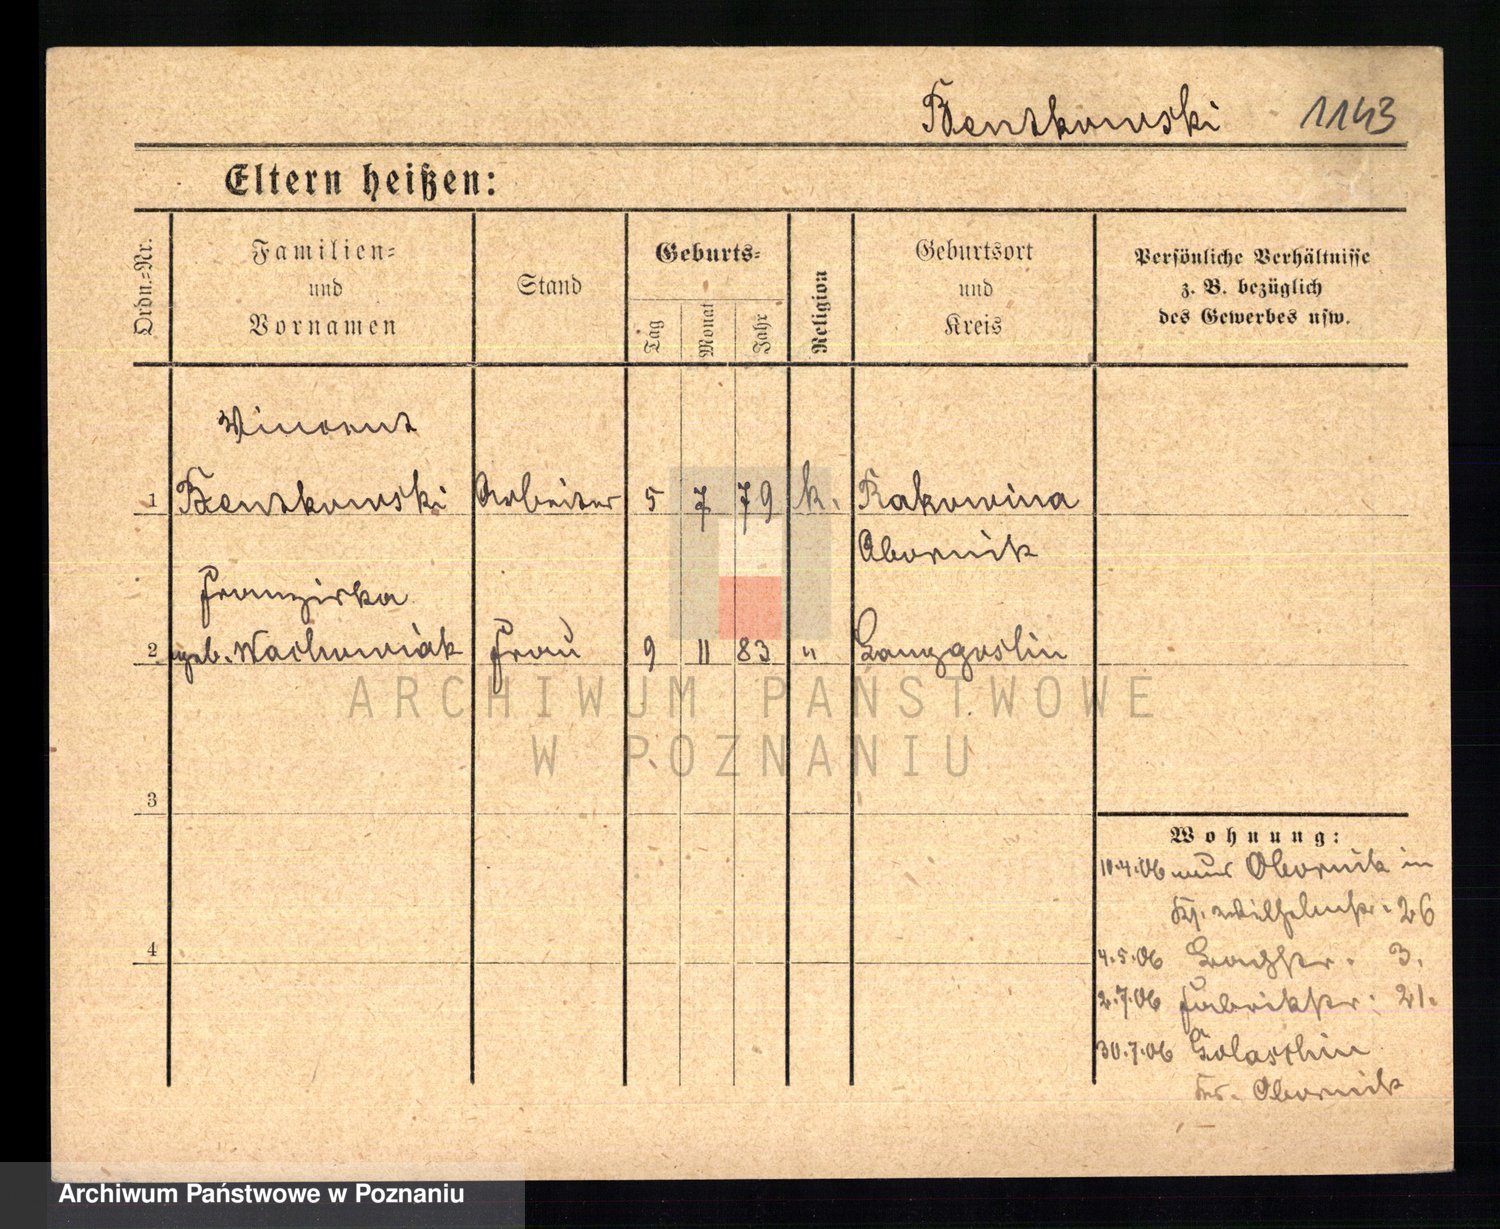 Bentkowski 1143
Eltern heißen:
Ordn.=Nr.
Familien=
und
Vornamen
Stand
Geburts=
Tag
Monat
Jahr
Religion
Geburtsort
und
Kreis
Persönliche Verhältnisse
z. B. bezüglich
des Gewerbes usw.
Vincent
1 Bentkowski Arbeiter 5 7 79 k. Rakowina
Obornik
Franziska
2 geb. Wachowiak Frau 9 11 83 " Langgoslin
3
4
Wohnung:
10.4.06 Obornik in
Wilhelmstr. 26
4.5.06 3.
2.7.06 Fabrikstr. 21.
30.7.06
Kr. Obornik
ARCHIWUM PAŃSTWOWE
W POZNANIU
Archiwum Państwowe w Poznaniu